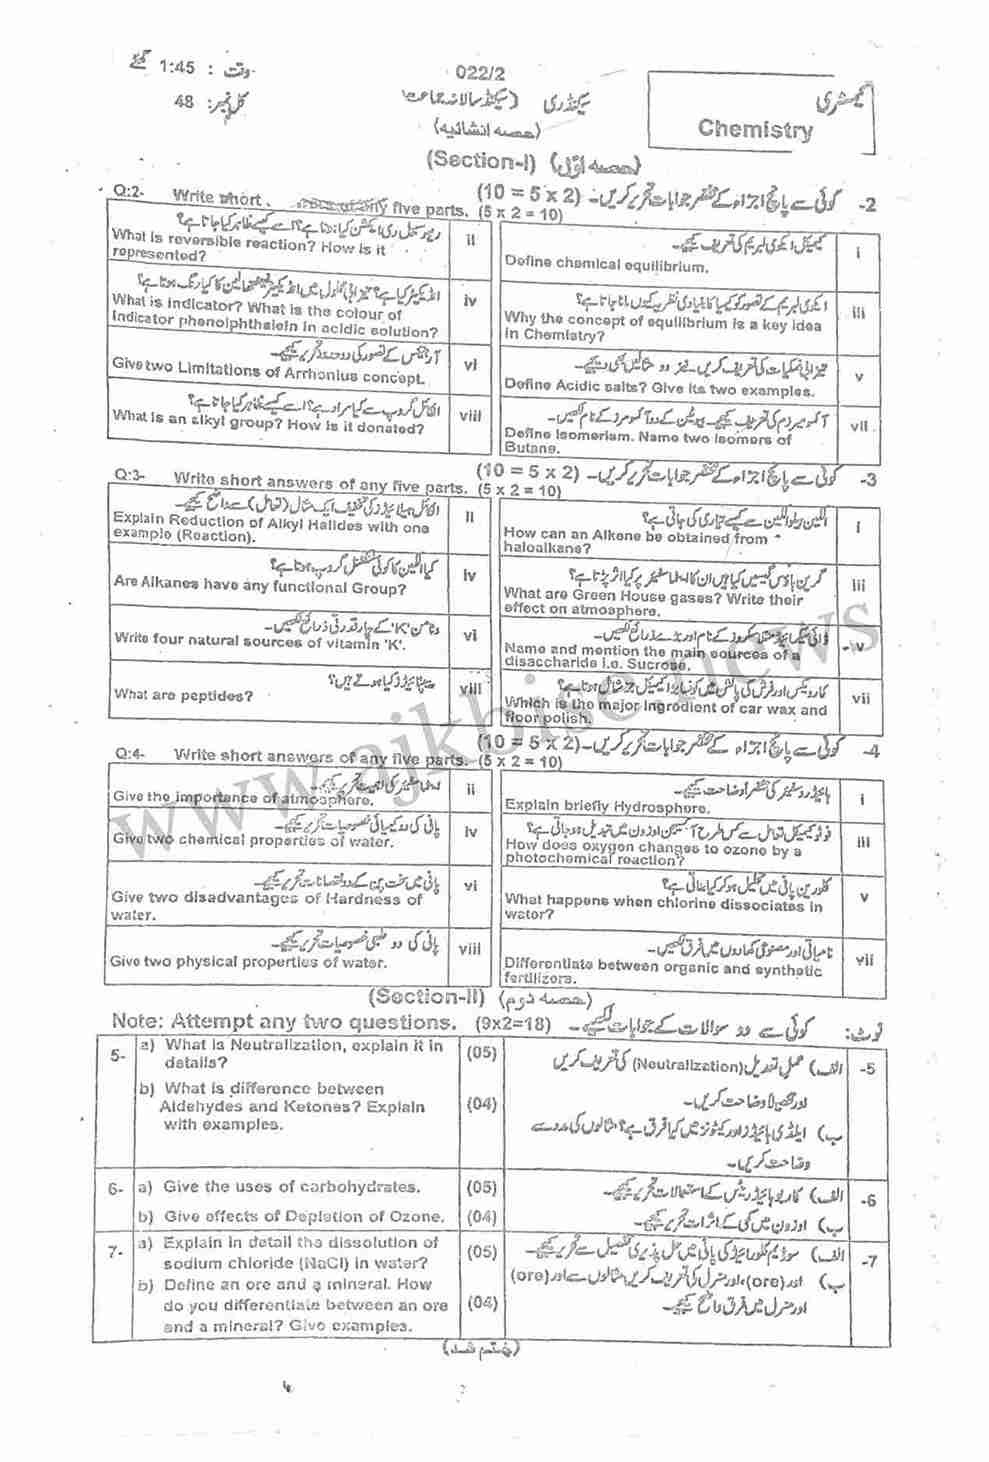 وقت : 1:45 گھنٹے
022/2
کیمسٹری
کل نمبر: 48
سیکنڈری (سیکنڈ سالانہ جماعت
Chemistry
(حصہ انشائیہ)
(Section-I) (حصہ اوّل)
Q:2- Write short any five parts. (5 x 2 = 10)
2- کوئی سے پانچ اجزاء کے مختصر جوابات تحریر کریں۔ (10 = 5 x 2)
i کیمیکل ایکوی لبریم کی تعریف کیجیے۔
Define chemical equilibrium.
ii ریورسیبل ری ایکشن کیا ہوتا ہے؟ اسے کیسے ظاہر کیا جاتا ہے؟
What is reversible reaction? How is it
represented?
iii ایکوی لبریم کے تصور کو کیمیا کا بنیادی نظریہ کیوں مانا جاتا ہے؟
Why the concept of equilibrium is a key idea
in Chemistry?
iv انڈیکیٹر کیا ہے؟ تیزابی محلول میں انڈیکیٹر فینولفتھالین کا کیا رنگ ہوتا ہے؟
What is indicator? What is the colour of
Indicator phenolphthalein in acidic solution?
v تیزابی نمکیات کی تعریف کریں۔ نیز دو مثالیں بھی دیجیے۔
Define Acidic salts? Give its two examples.
vi آرہینیس کے تصور کی دو حدود تحریر کیجیے۔
Give two Limitations of Arrhonius concept.
vii آئسومیرزم کی تعریف کیجیے۔ بیوٹین کے دو آئسومرز کے نام لکھیں۔
Define Isomerism. Name two isomers of
Butane.
viii الکائل گروپ سے کیا مراد ہے؟ اسے کیسے ظاہر کیا جاتا ہے؟
What is an alkyl group? How is it donated?
Q:3- Write short answers of any five parts. (5 x 2 = 10)
3- کوئی سے پانچ اجزاء کے مختصر جوابات تحریر کریں۔ (10 = 5 x 2)
i الکین ہیلوالکین سے کیسے تیار کی جاتی ہے؟
How can an Alkene be obtained from
haloalkane?
ii الکائل ہیلائیڈز کی تخفیف ایک مثال (تعامل) سے واضح کیجیے۔
Explain Reduction of Alkyl Halides with one
example (Reaction).
iii گرین ہاؤس گیسیں کیا ہیں ان کا اٹماسفیئر پر کیا اثر پڑتا ہے؟
What are Green House gases? Write their
effect on atmosphere.
iv کیا الکین کا کوئی فنکشنل گروپ ہوتا ہے؟
Are Alkanes have any functional Group?
v ڈائی سیکرائیڈ مثلاً سکروز کے نام اور بڑے ذرائع لکھیں۔
Name and mention the main sources of a
disaccharide i.e. Sucrose.
vi وٹامن 'K' کے چار قدرتی ذرائع لکھیں۔
Write four natural sources of vitamin 'K'.
vii کار ویکس اور فرش کی پالش میں کونسا بڑا کیمیکل جز شامل ہوتا ہے؟
Which is the major ingredient of car wax and
floor polish.
viii پیپٹائیڈز کیا ہوتے ہیں؟
What are peptides?
Q:4- Write short answers of any five parts. (5 x 2 = 10)
4- کوئی سے پانچ اجزاء کے مختصر جوابات تحریر کریں۔ (10 = 5 x 2)
i ہائیڈروسفیئر کی مختصراً وضاحت کیجیے۔
Explain briefly Hydrosphere.
ii اٹماسفیئر کی اہمیت تحریر کیجیے۔
Give the importance of atmosphere.
iii فوٹو کیمیکل تعامل سے کس طرح آکسیجن اوزون میں تبدیل ہو جاتی ہے؟
How does oxygen changes to ozone by a
photochemical reaction?
iv پانی کی دو کیمیائی خصوصیات تحریر کیجیے۔
Give two chemical properties of water.
v کلورین پانی میں تحلیل ہو کر کیا بناتی ہے؟
What happens when chlorine dissociates in
water?
vi پانی میں سخت پن کے دو نقصانات تحریر کیجیے۔
Give two disadvantages of Hardness of
water.
vii نامیاتی اور مصنوعی کھادوں میں فرق لکھیں۔
Differentiate between organic and synthetic
fertilizers.
viii پانی کی دو طبعی خصوصیات تحریر کیجیے۔
Give two physical properties of water.
(Section-II) (حصہ دوم)
Note: Attempt any two questions. (9x2=18)
نوٹ: کوئی سے دو سوالات کے جوابات لکھیے۔
5- a) What is Neutralization, explain it in (05)
details?
b) What is difference between
Aldehydes and Ketones? Explain (04)
with examples.
5- الف) عمل تعدیل (Neutralization) کی تعریف کریں
اور تفصیلاً وضاحت کریں۔
ب) ایلڈی ہائیڈز اور کیٹونز میں کیا فرق ہے؟ مثالوں کی مدد سے
وضاحت کریں۔
6- a) Give the uses of carbohydrates. (05)
b) Give effects of Depletion of Ozone. (04)
6- الف) کاربوہائیڈریٹس کے استعمالات تحریر کیجیے۔
ب) اوزون میں کمی کے اثرات تحریر کیجیے۔
7- a) Explain in detail the dissolution of (05)
sodium chloride (NaCl) in water?
b) Define an ore and a mineral. How
do you differentiate between an ore (04)
and a mineral? Give examples.
7- الف) سوڈیم کلورائیڈ کی پانی میں حل پذیری تفصیل سے تحریر کیجیے۔
ب) اور (ore)، اور منرل کی تعریف کریں مثالوں سے اور (ore)
اور منرل میں فرق واضح کیجیے۔
(ختم شد)
www.ajkbise.news